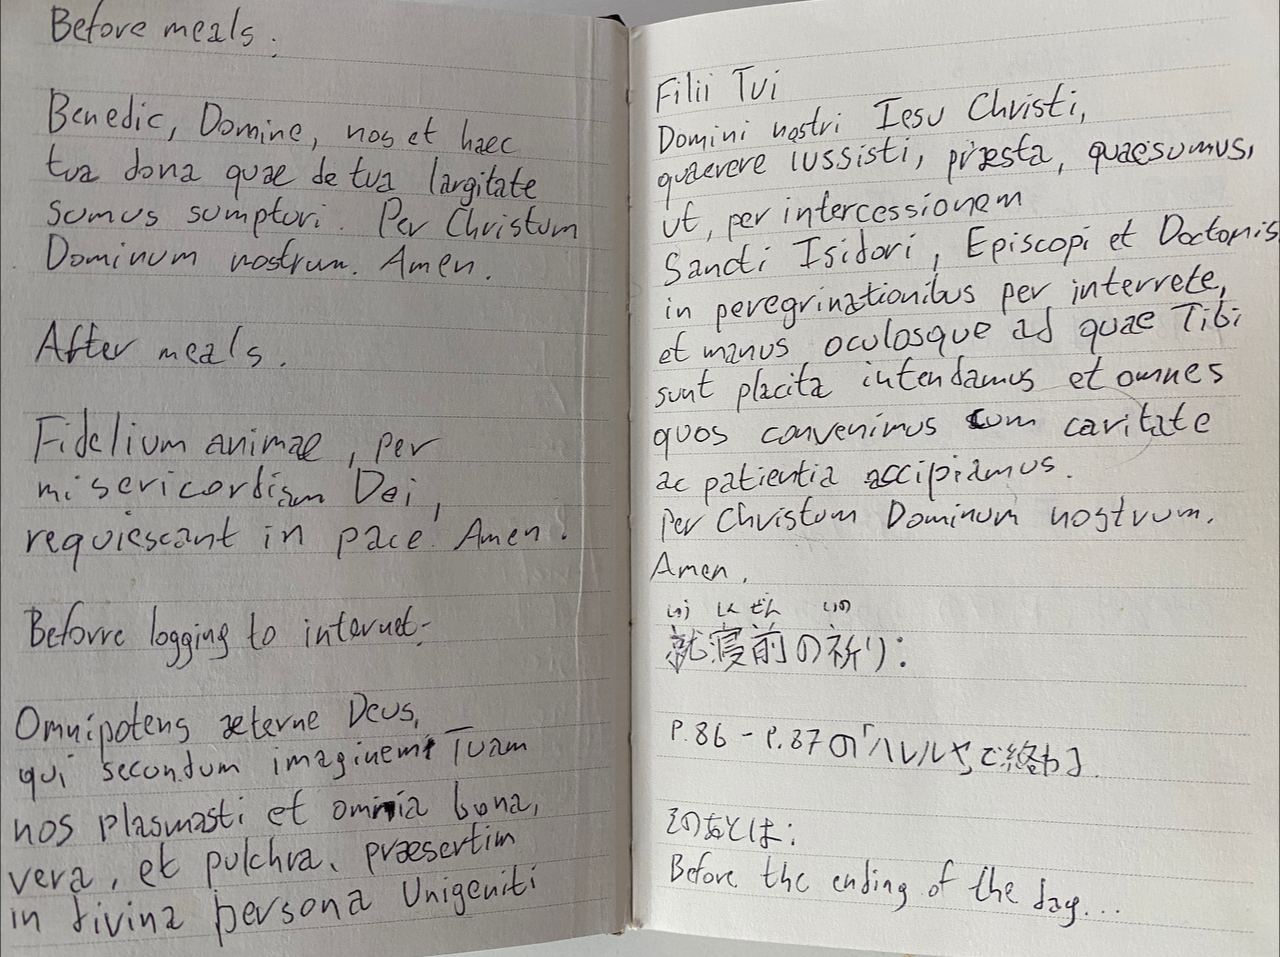 Before meals.
Benedic, Domine, nos et haec
tua dona quae de tua largitate
sumus sumpturi. Per Christum
Dominum nostrum. Amen.
After meals.
Fidelium animae, per
misericordiam Dei,
requiescant in pace. Amen.
Beforre logging to internet-
Omnipotens æterne Deus,
qui secundum imaginem Tuam
nos plasmasti et omnia bona,
vera, et pulchra, praesertim
in divina persona Unigeniti
Filii Tui
Domini nostri Iesu Christi,
quaerere iussisti, præsta, quaesumus,
ut, per intercessionem
Sancti Isidori, Episcopi et Doctoris
in peregrinationibus per interrete,
et manus oculosque ad quae Tibi
sunt placita intendamus et omnes
quos convenimus cum caritate
ac patientia accipiamus.
Per Christum Dominum nostrum.
Amen.
しん ぜん いの
就寝前の祈り:
P.86 - P.87の「ハレルヤで終わ」
そのあとは:
Before the ending of the day...